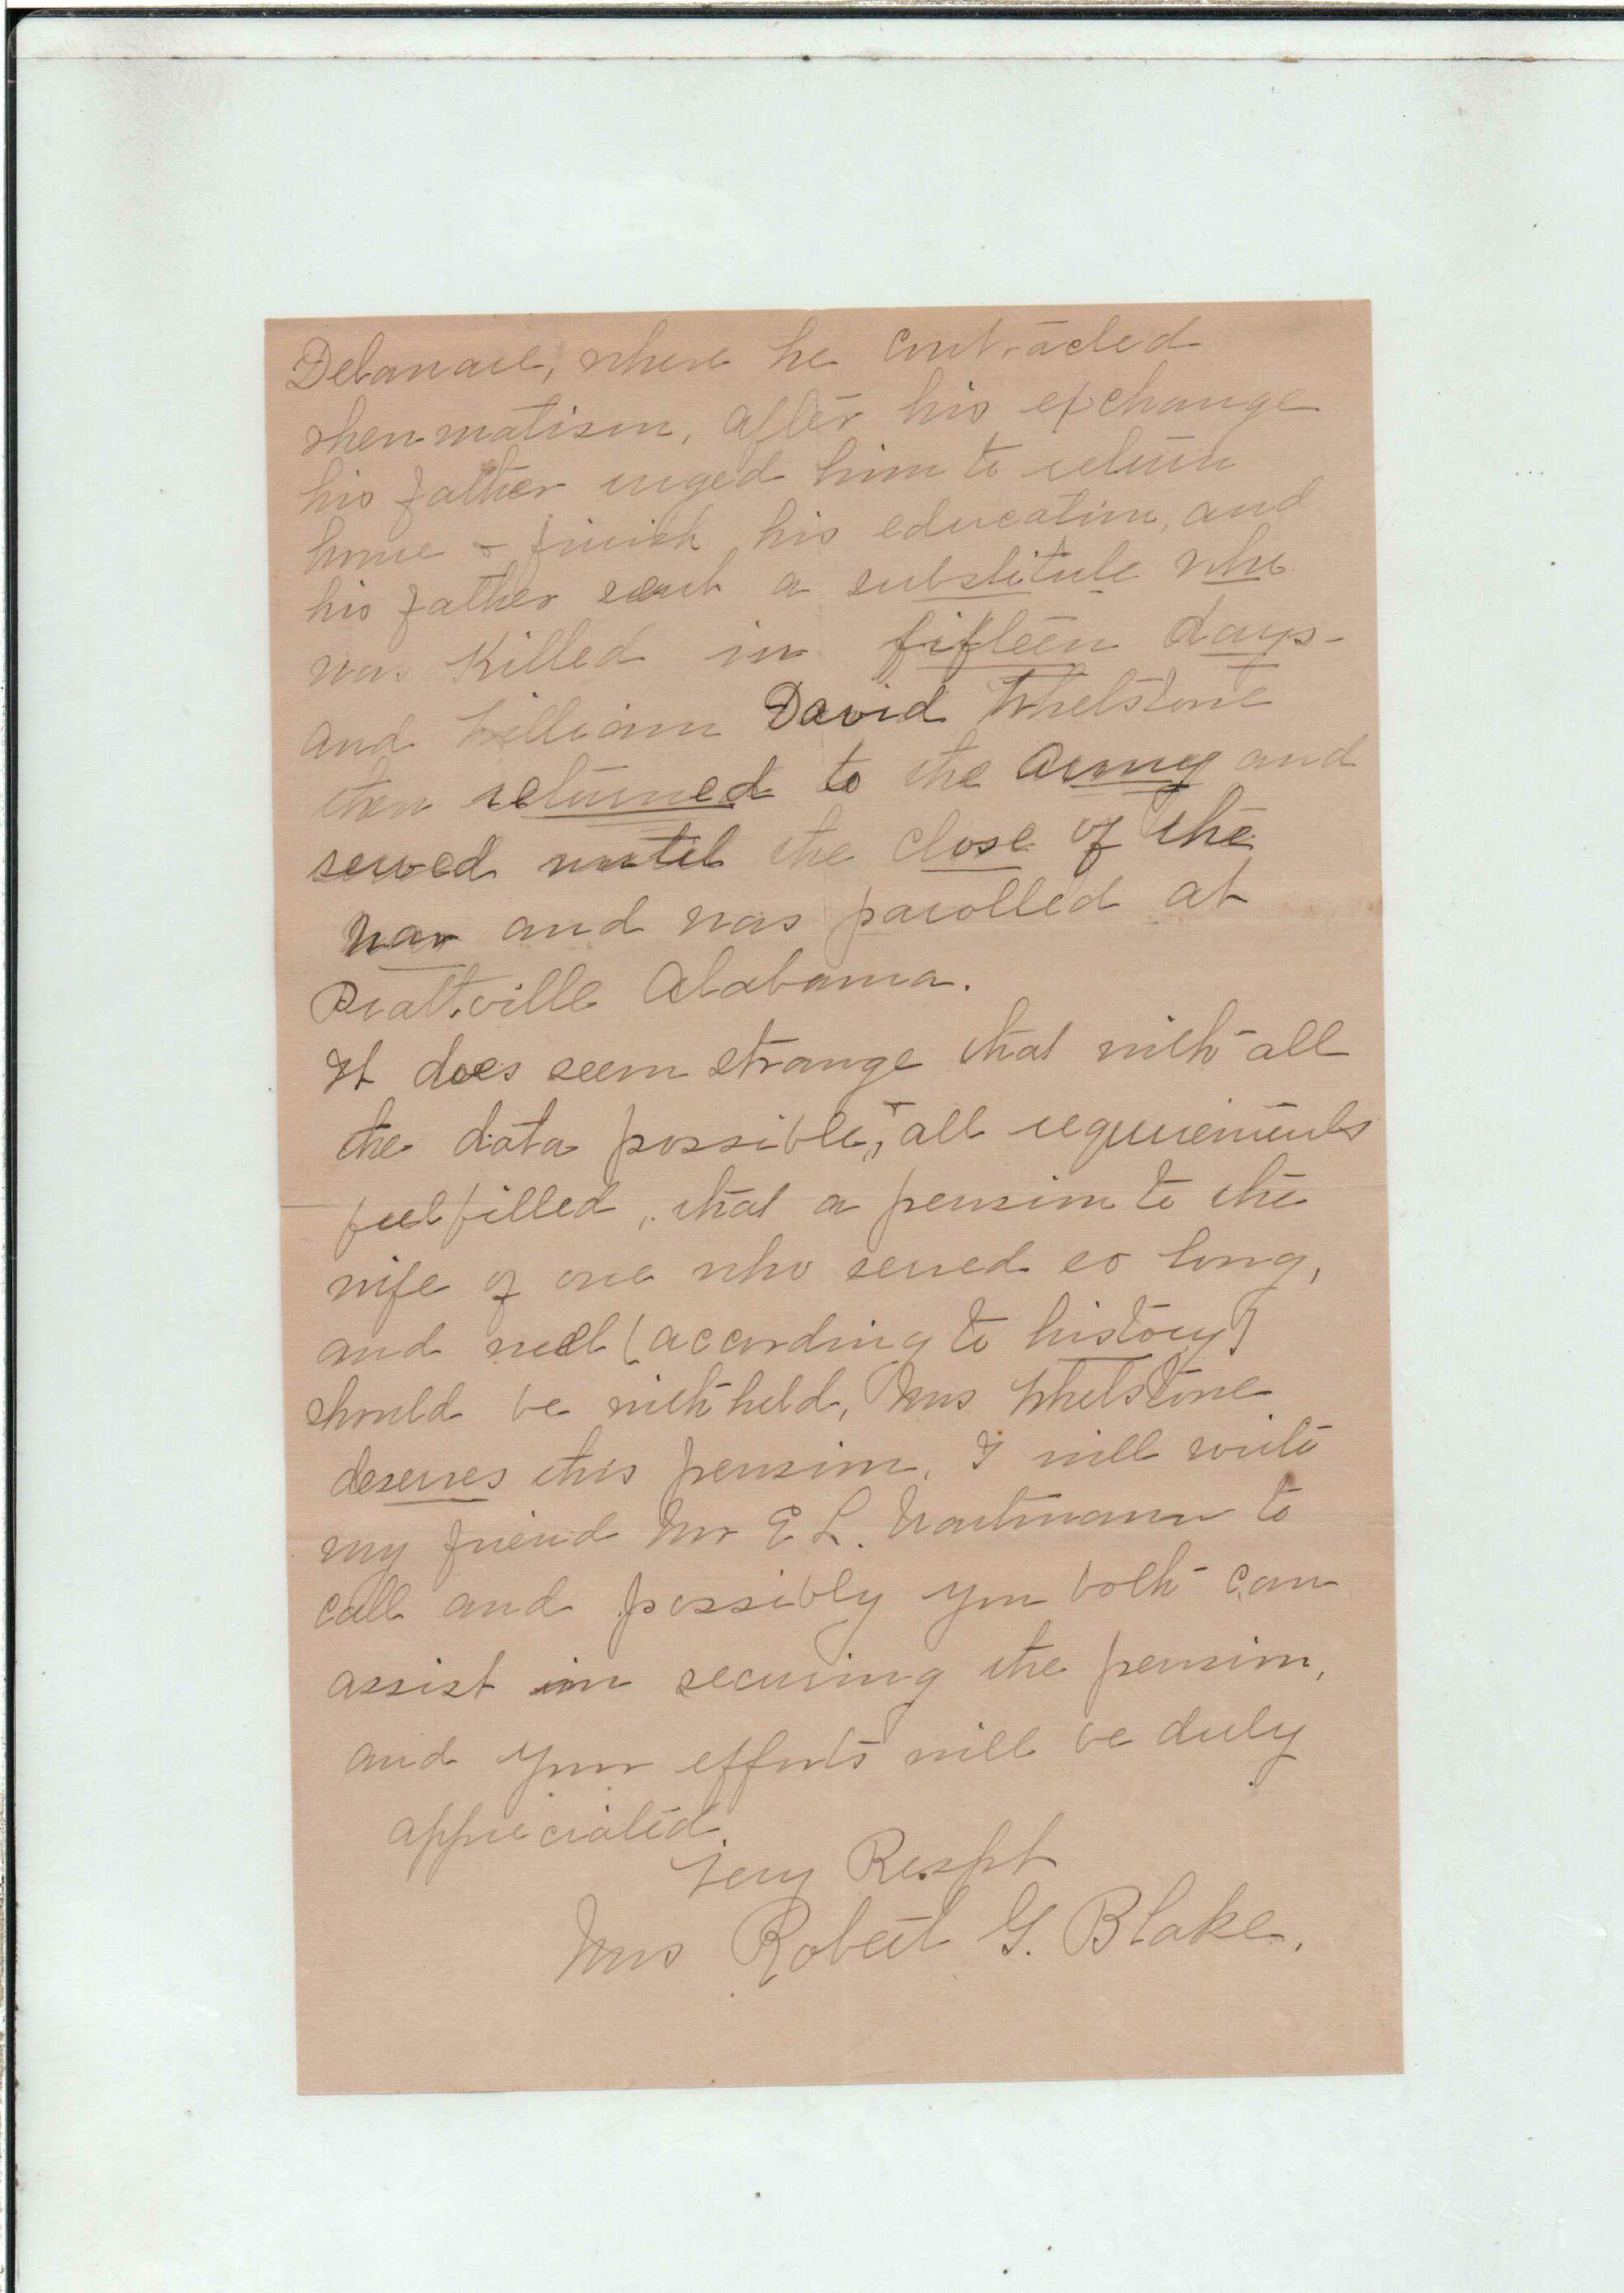 Delaware, where he contracted
rheumatism, after his exchange
his father urged him to return
home & finish his education, and
his father sent a substitute who
was killed in fifteen days -
and William David Whetstone
then returned to the army and
served until the close of the
war and was parolled at
Prattville Alabama.
It does seem strange that with all
the data possible, all requirements
fulfilled, that a pension to the
wife of one who served so long,
and well (according to history)
should be withheld, Mrs Whetstone
deserves this pension. I will write
my friend Mr E L. to
call and possibly you both can
assist in securing the pension,
and your efforts will be duly
appreciated.
Very Respt
Mrs Robert G. Blake.